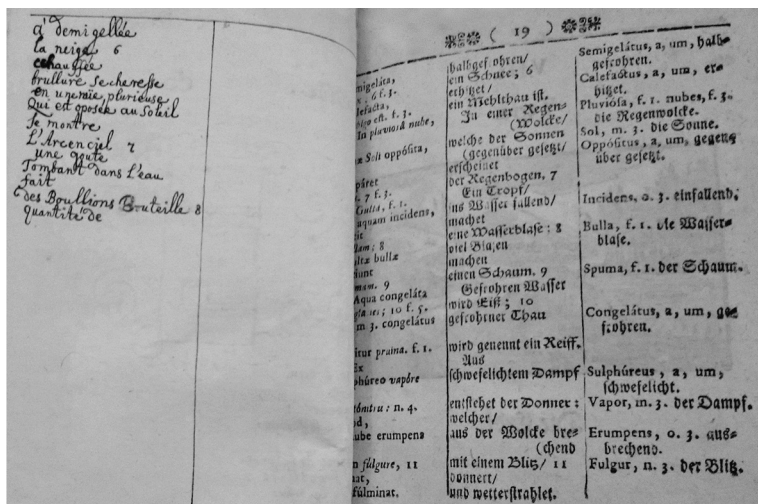 a' demigellée
la neige 6
echauffee
brullure Secheresse
en une nüe, plurieuse
Qui est oposée au Soleil
Se montre
L'Arcenciel 7
une goute
Tombant dans L'eau
fait
des Boullions Bouteille 8
quantité de
( 19 )
migeláta,
; 6 f. 3.
lefacta,
igo est. f. 3.
In pluviosâ nube,
æ Soli oppósita,
páret
. 7 f. 3.
Gutta, f. 1.
aquam incidens,
cit
llam; 8
ltæ bullæ
ciunt
mam. 9
Aqua congeláta
glacies; 10 f. 5.
m 3. congelátus
itur pruina. f. 1.
Ex
phúreo vapóre
tónitru: n. 4.
od,
ube erumpens
n fúlgure, 11
nat,
fúlminat.
halbgefrohren/
ein Schnee; 6
erhitzet/
ein Mehlthau ist.
In einer Regen-
(Wolcke/
welche der Sonnen
(gegenüber gesetzt/
erscheinet
der Regenbogen, 7
Ein Tropf/
ins Wasser fallend/
machet
eine Wasserblase: 8
viel Blasen
machen
einen Schaum. 9
Gefrohren Wasser
wird Eiß; 10
gefrohrner Thau
wird genennt ein Reiff.
Aus
schwefelichtem Dampf
entstehet der Donner:
welcher/
aus der Wolcke bre-
(chend
mit einem Blitz/ 11
donnert/
und wetterstrahlet.
Semigelátus, a, um, halb-
gefrohren.
Calefactus, a, um, er-
hitzet.
Pluviósa, f. 1. nubes, f. 3.
die Regenwolcke.
Sol, m. 3. die Sonne.
Oppósitus, a, um, gegen-
über gesetzt.
Incidens, o. 3. einfallend.
Bulla, f. 1. die Wasser-
blase.
Spuma, f. 1. der Schaum.
Congelátus, a, um, ge-
frohren.
Sulphúreus, a, um,
schwefelicht.
Vapor, m. 3. der Dampf.
Erumpens, o. 3. aus-
brechend.
Fulgur, n. 3. der Blitz.